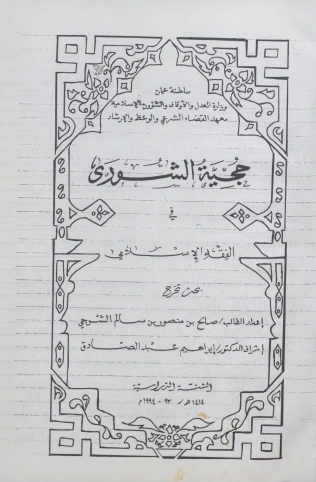 سلطنة عمان
وزارة العدل والأوقاف والشؤون الإسلامية
معهد القضاء الشرعي والوعظ والإرشاد
حجية الشورى
في
الفقه الإسلامي
بحث تخرج
إعداد الطالب/ صالح بن منصور بن سالم
إشراف الدكتور/ إبراهيم عبد الصادق
السنة الدراسية
١٤١٤هـ / ٩٣ - ١٩٩٤م